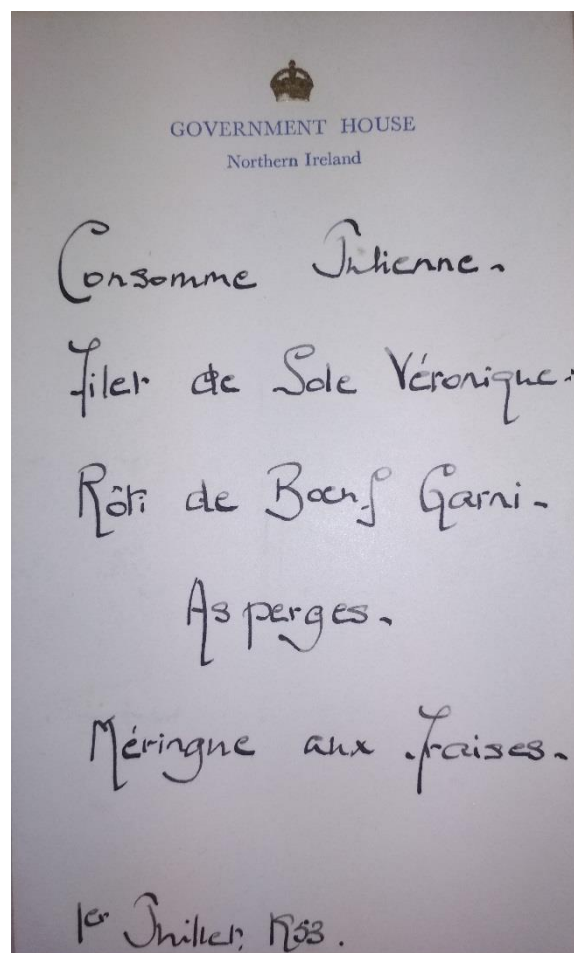 GOVERNMENT HOUSE
Northern Ireland
Consomme Julienne.
Filet de Sole Véronique.
Rôti de Boeuf Garni.
Asperges.
Méringue aux fraises.
1er Juillet, 1953.